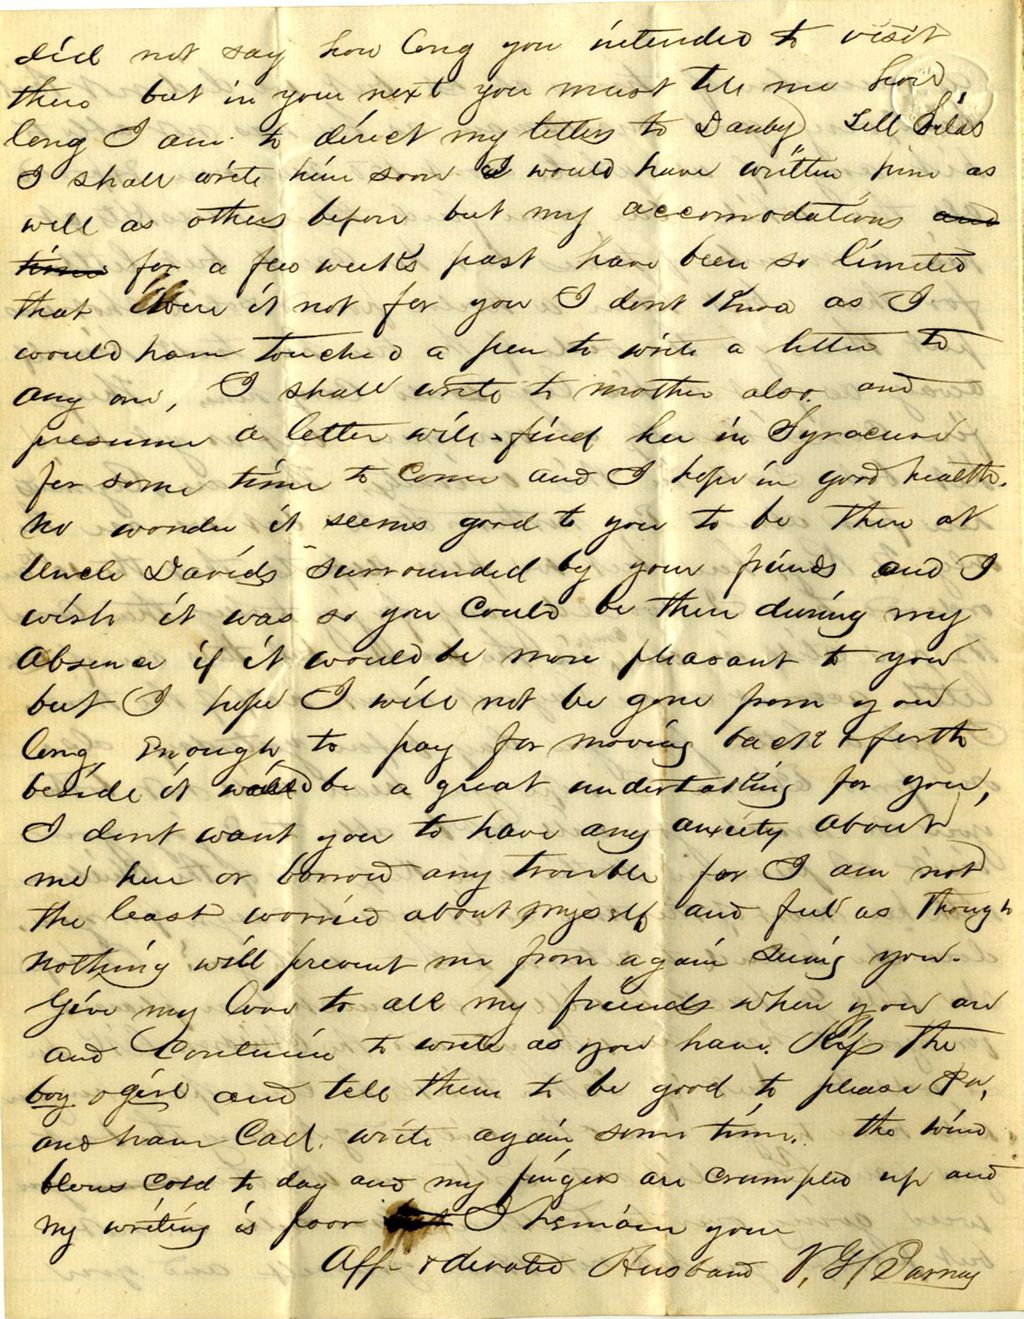 did not say how long you intended to visit
there but in your next you must tell me how
long I am to direct my letters to Danby Tell Silas
I shall write him soon I would have written him as
well as others before but my accomodations and
time for a few weeks past have been so limited
that were it not for you I dont know as I
would have touched a pen to write a letter to
any one, I shall write to mother also and
presume a letter will find her in Syracuse
for some time to come and I hope in good health.
no wonder it seems good to you to be there at
Uncle Davids surrounded by your friends and I
wish it was so you could be there during my
absence if it would be more pleasant to you
but I hope I will not be gone from you
long enough to pay for moving back & forth
beside it would be a great undertaking for you,
I dont want you to have any anxiety about
me here or borrow any trouble for I am not
the least worried about myself and feel as though
nothing will prevent me from again seeing you.
Give my love to all my friends where you are
and continue to write as you have. Kiss the
boy & girl and tell them to be good to please Pa,
and have Cad. write again some time. the wind
blows cold to day and my fingers are crumpled up and
my writing is poor but I remain your
Aff & devoted Husband V. G. Barney